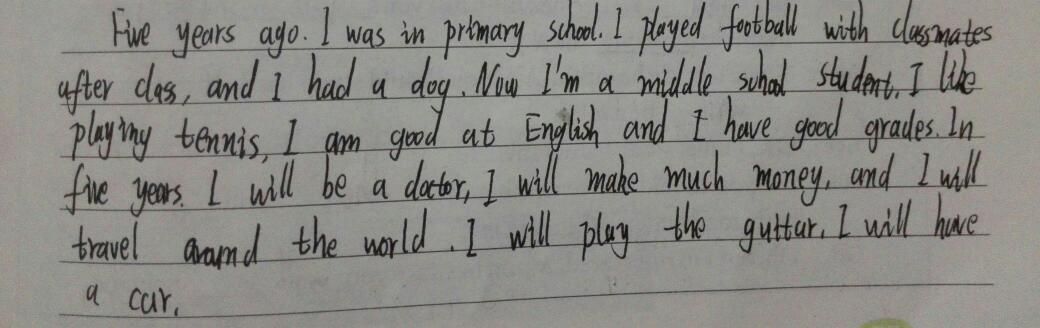 Five years ago. I was in primary school. I played football with classmates
after class, and I had a dog. Now I'm a middle school student. I like
playing tennis, I am good at English and I have good grades. In
five years. I will be a doctor, I will make much money, and I will
travel around the world. I will play the guttar. I will have
a car.